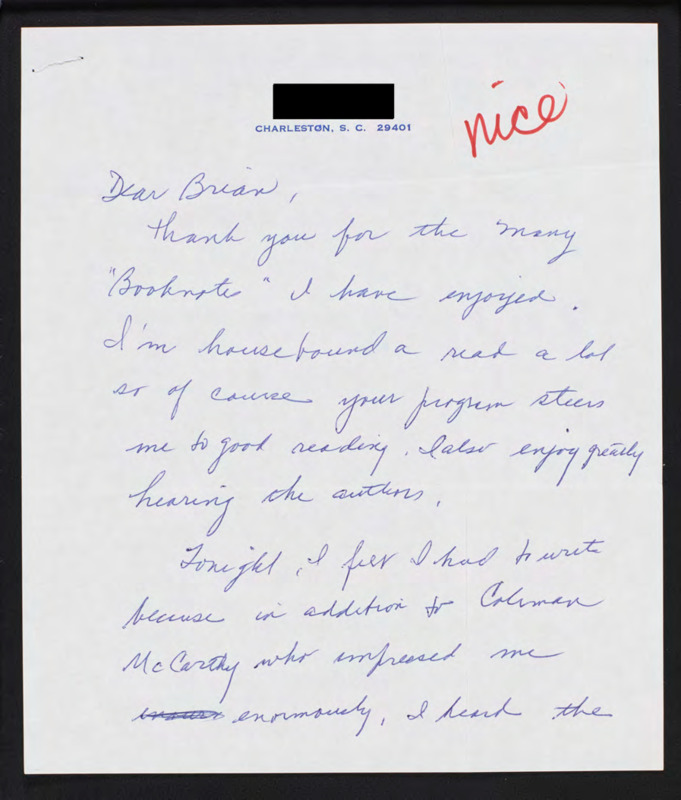 CHARLESTON, S. C. 29401
nice
Dear Brian,
Thank you for the many
"Booknotes" I have enjoyed.
I'm housebound a read a lot
so of course your program steers
me to good reading. I also enjoy greatly
hearing the authors.
Tonight, I felt I had to write
because in addition to Coleman
McCarthy who impressed me
enormously, I heard the